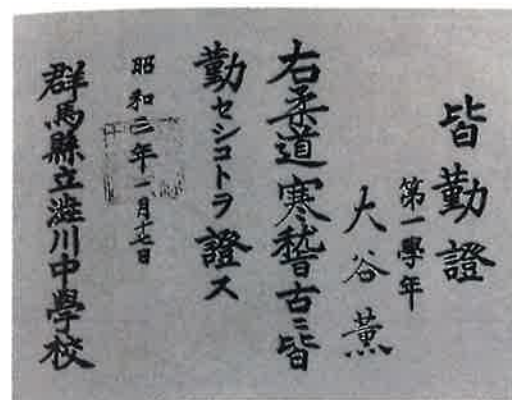 皆勤證
第一學年
大谷薫
右柔道寒稽古ニ皆
勤セシコトヲ證ス
昭和二年一月十七日
群馬縣立澁川中學校